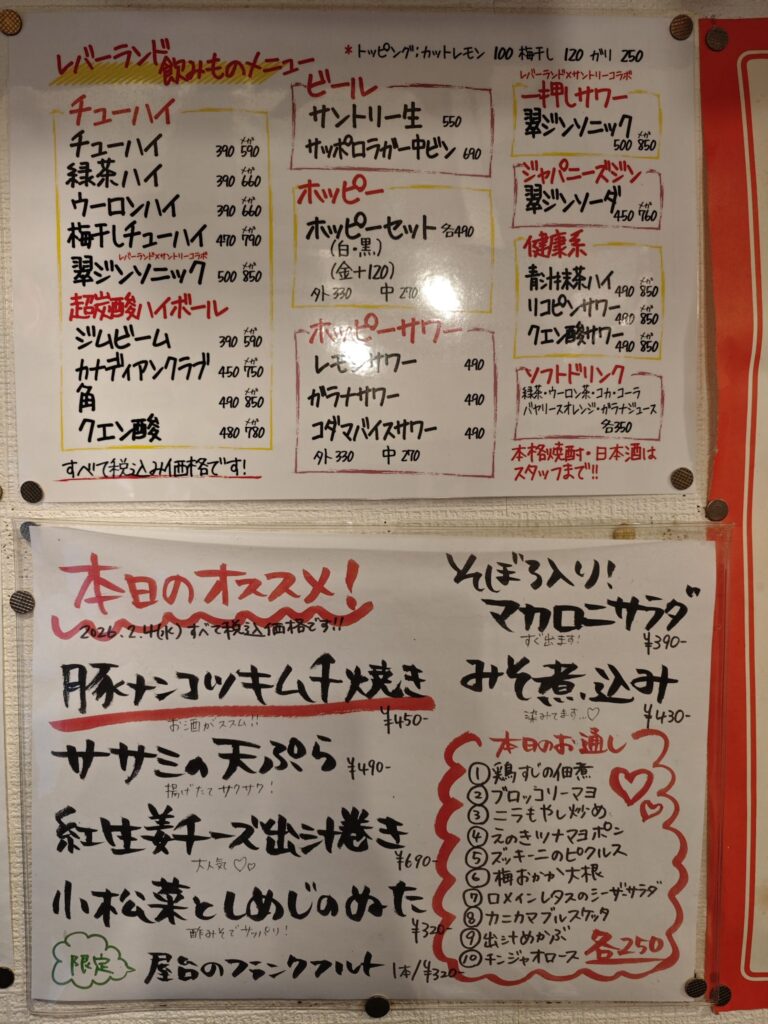 レバーランド飲みものメニュー
*トッピング;カットレモン 100 梅干し 120 ガリ 250
チューハイ
チューハイ 390 メガ590
緑茶ハイ 390 メガ660
ウーロンハイ 390 メガ660
梅干しチューハイ 470 メガ790
レバーランド×サントリーコラボ
翠ジンソニック 500 メガ850
超炭酸ハイボール
ジムビーム 390 メガ590
カナディアンクラブ 450 メガ750
角 490 メガ850
クエン酸 480 メガ780
すべて税込み価格です!
ビール
サントリー生 550
サッポロラガー中ビン 690
ホッピー
ホッピーセット 各490
(白・黒)
(金+120)
外330 中270
ホッピーサワー
レモンサワー 490
ガラナサワー 490
コダマバイスサワー 490
外330 中270
レバーランド×サントリーコラボ
一押しサワー
翠ジンソニック
500 メガ850
ジャパニーズジン
翠ジンソーダ
450 メガ760
健康系
青汁抹茶ハイ 490 メガ850
リコピンサワー 490 メガ850
クエン酸サワー 490 メガ850
ソフトドリンク
緑茶・ウーロン茶・コカ・コーラ
バヤリースオレンジ・ガラナジュース
各350
本格焼酎・日本酒は
スタッフまで!!
本日のオススメ!
2026.2.4(水)すべて税込価格です!!
豚ナンコツキムチ焼き
お酒がススム!!
¥450-
ササミの天ぷら ¥490-
揚げたてサクサク!
紅生姜チーズ出汁巻き
大人気♡♡
¥690-
小松菜としめじのぬた
酢みそでサッパリ!
¥320-
限定 屋台のフランクフルト 1本/¥320-
そぼろ入り!
マカロニサラダ
すぐ出ます!
¥390-
みそ煮込み
染みてます…♡
¥430-
本日のお通し
①鶏すじの佃煮
②ブロッコリーマヨ
③ニラもやし炒め
④えのきツナマヨポン
⑤ズッキーニのピクルス
⑥梅おかか大根
⑦ロメインレタスのシーザーサラダ
⑧カニカマブルスケッタ
⑨出汁めかぶ
⑩チンジャオロース 各250